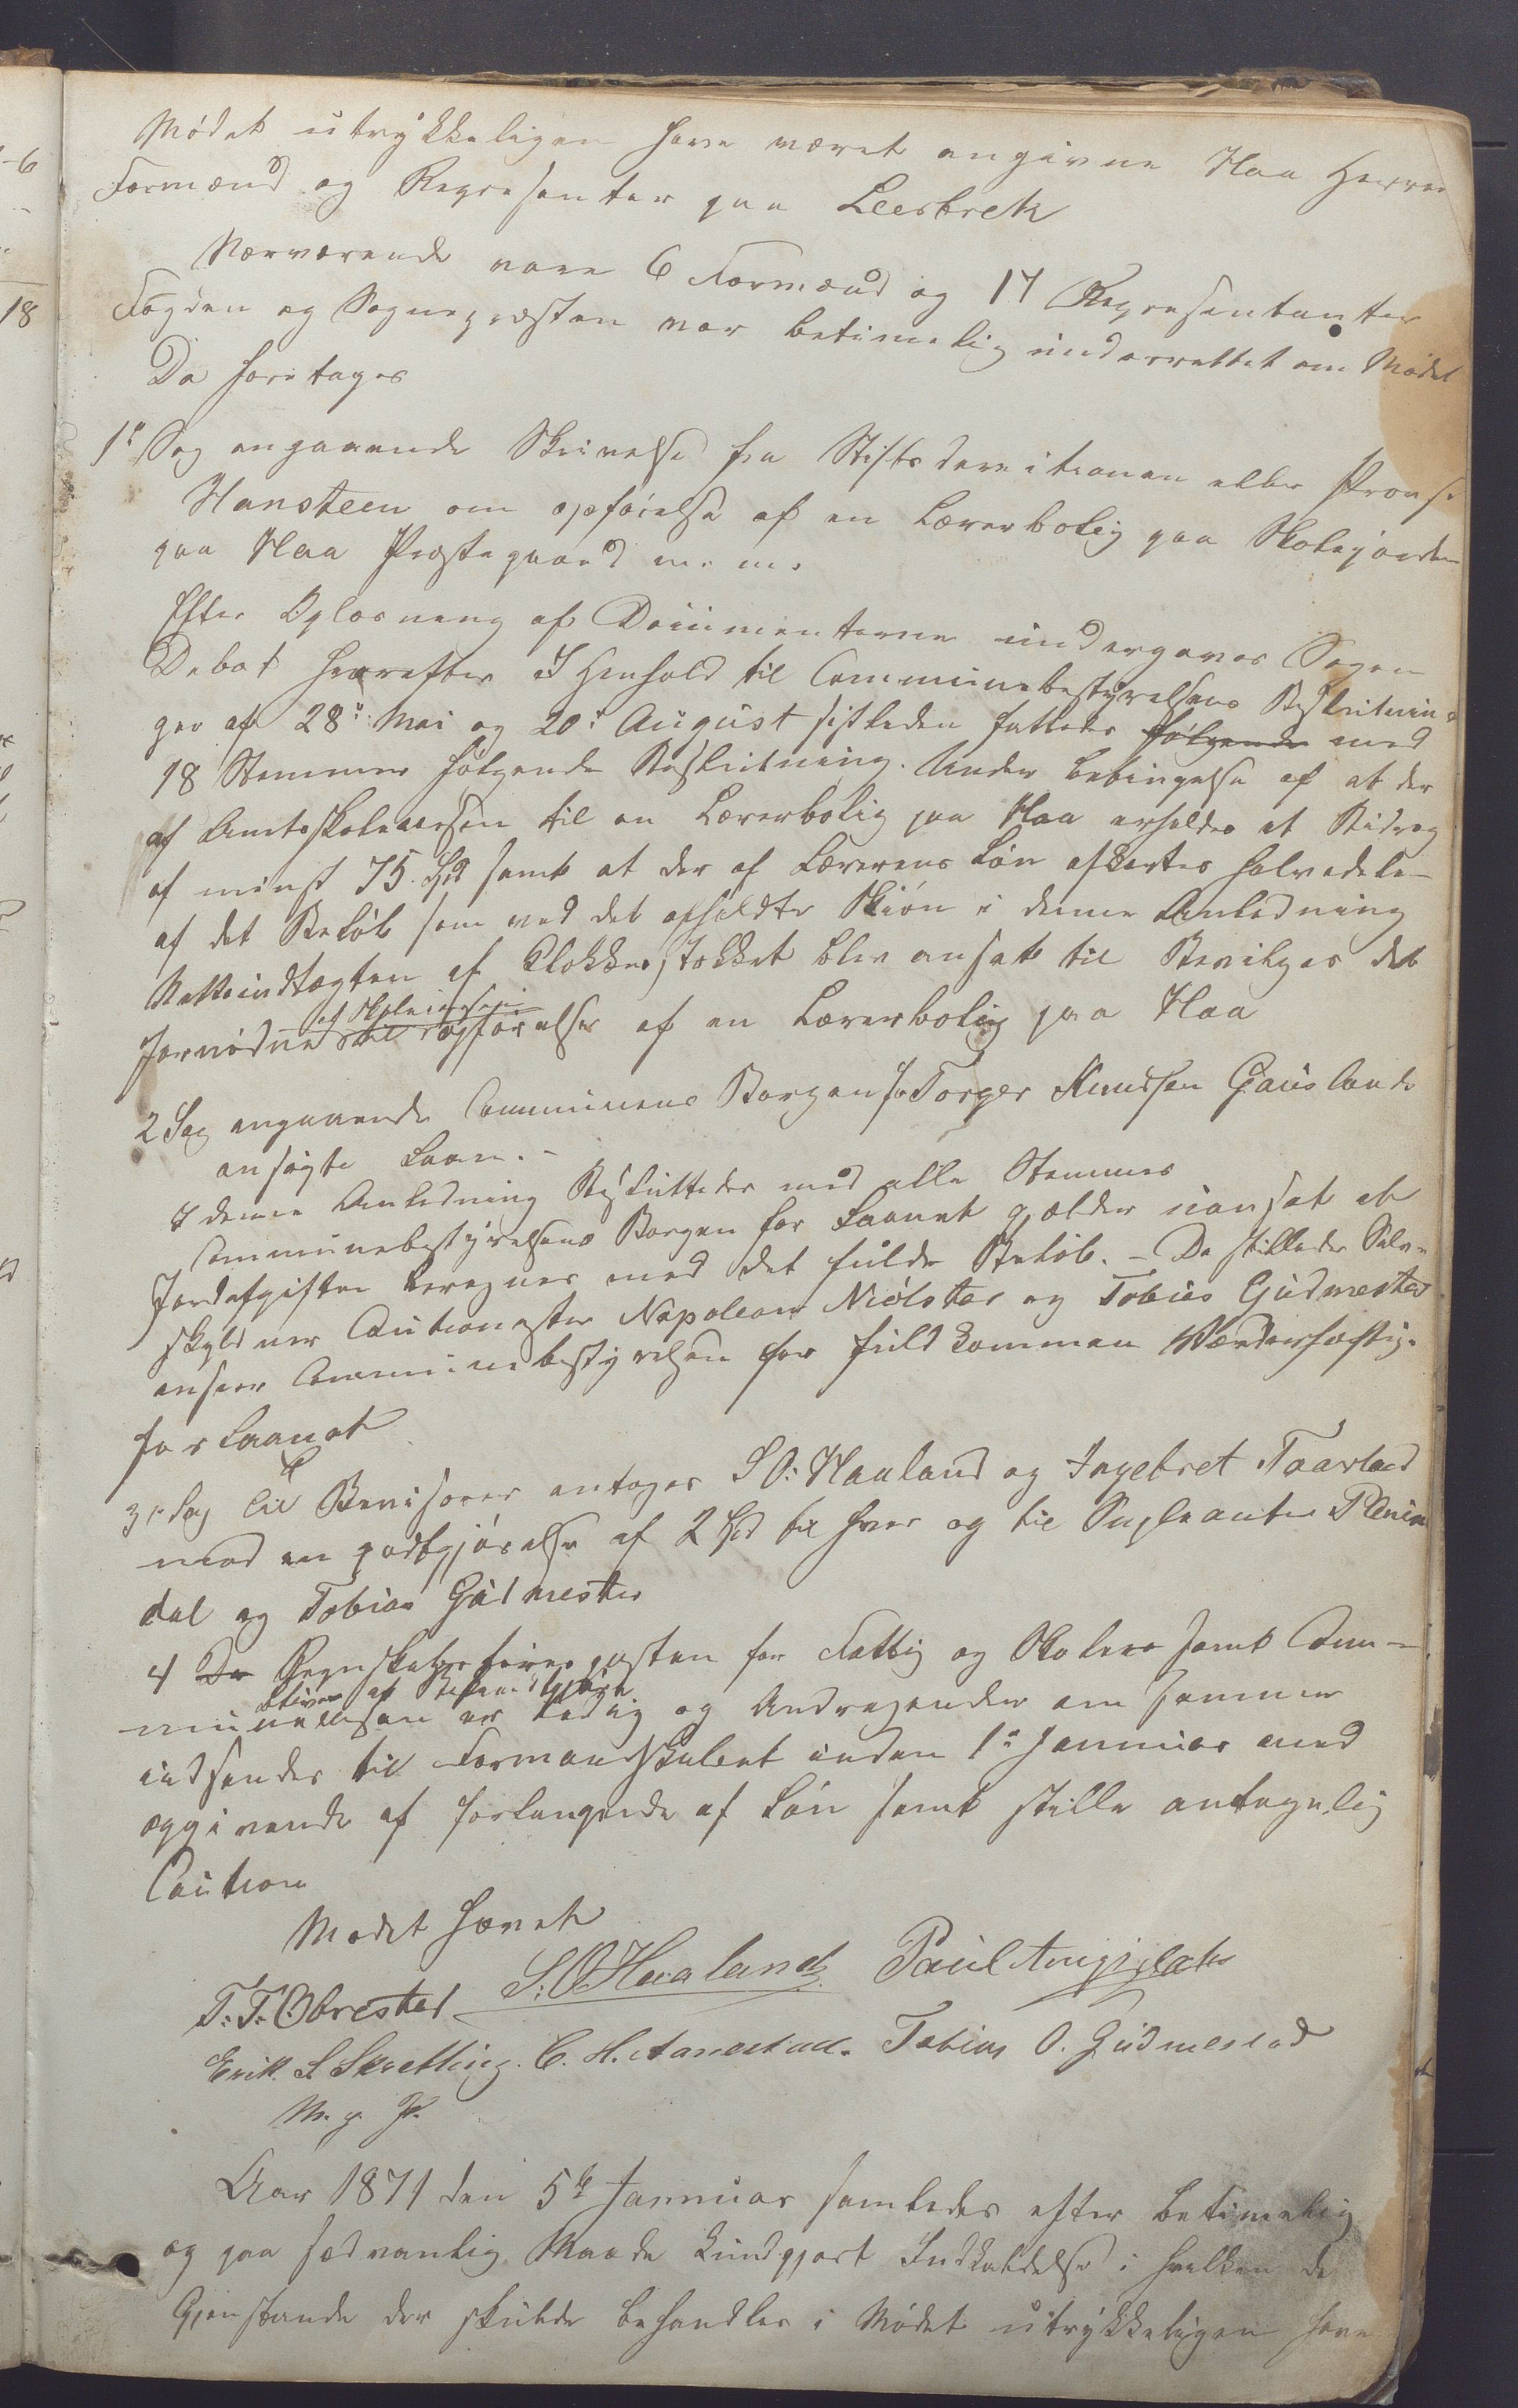 Mødet utrykkeligen have været angivne Haa Herres
Formænd og Represanter paa Leesbrek
Nærværende vare 6 Formænd og 17 Representanter
Fogden og Sognepræsten var betimelig underrettet om Mødet
Da foretages
1ʳ Sag angaaende Skrivelse fra Stiftsdirectionen eller Provst
Hansteen om opførelse af en Lærerbolig paa Skolejorden
paa Haa Præstegaard m. m.
Efter Oplæsning af Documenterne undergaves Sagen
Debat hvorefter I Henhold til Communebestyrelsens Beslutnin-
ger af 28ᵈ Mai og 20ᵈ August sistleden fattedes følgende med
18 Stemmer følgende Beslutning. Under betingelse af at der
af Amtsskolecassen til en Lærerbolig paa Haa erholdes et Bidrag
af minst 75 Spd samt at der af Lærerens Løn afkortes halvedelen
af det Beløb som ved det afholdte Skjøn i denne Anledning
Nettoindtægten af Klokkerstokket blev ansat til Bevilges det
fornødne til opførelse af en Lærerbolig paa Haa
2 Sag angaaende Communens Borgen for Torger Knudsen Gauslands
ansøgte Laan. -
I denne Anledning Besluttedes med alle Stemmer
Communebestyrelsens Borgen for Laanet gjælder uanset at
Jordafgiften beregnes med det fulde Beløb. - De stillede Selv-
skyldner Cautionister Napoleon Niølstad og Tobias Gudmestad
anseer Communebestyrelsen for fuldkommen Vederhæftig
for Laanet
3ʳ Sag Til Revisorer antoges S O. Haaland og Ingebret Taarland
med en godtgjørelse af 2 Spd til hver og til Supleanter
dal og Tobias Gudmestad
4 De Regnskabsførerposten for Fattig og Skolen samt Com-
bliver at Bekjendtgjøre
munecassen er ledig og Andragender om samme
indsendes til Formandskabet inden 1ᵉ Januar med
opgivende af forlangende af Løn samt stille antagelig
Caution
Mødet hævet
T. T. Obrestad S. O. Haaland Paul
Erik S Skretting. C. H. Aanestad. Tobias O. Gudmestad
M. p. P.
Aar 1871 den 5ᵗᵉ Januar samledes efter betimelig
og paa sædvanlig Maade kundgjort Indkaldelse i hvilken de
Gjenstande der skulde behandles i Mødet utrykkeligen have